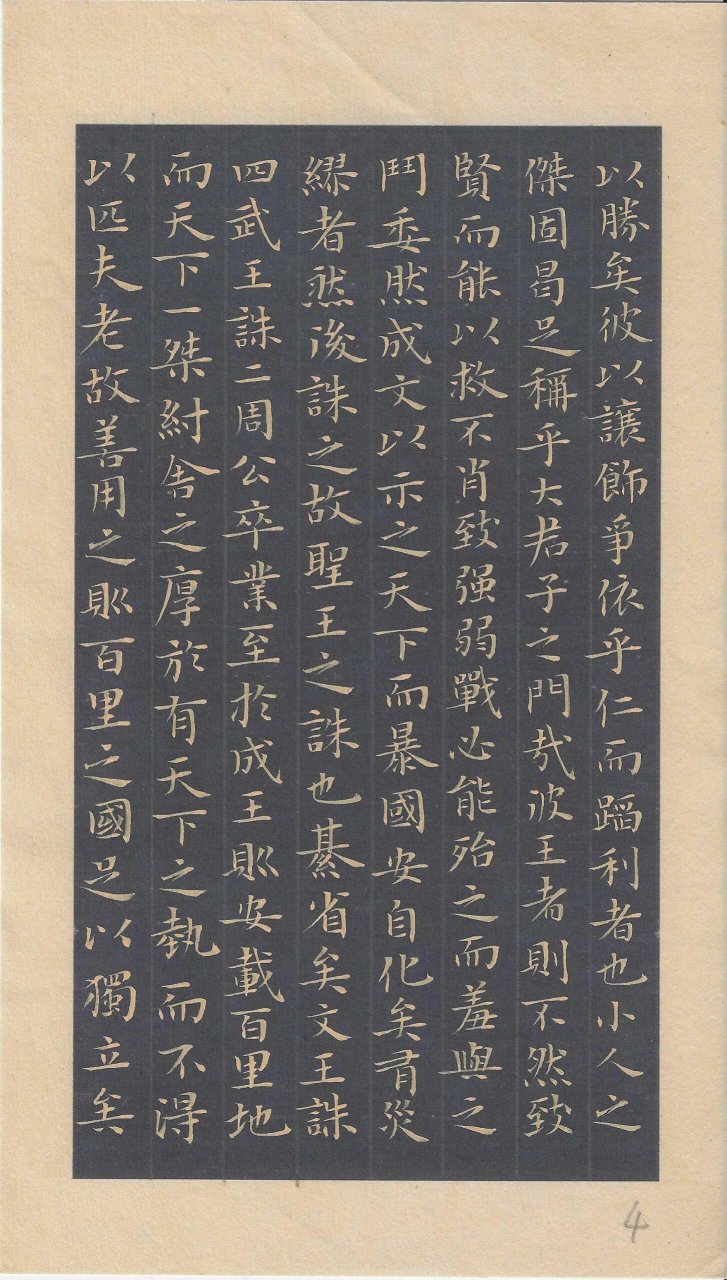 以勝矣彼以讓飾爭依乎仁而蹈利者也小人之
傑固曷足稱乎大君子之門哉彼王者則不然致
賢而能以救不肖致强弱戰必能殆之而羞與之
鬥委然成文以示之天下而暴國安自化矣有災
繆者然後誅之故聖王之誅也綦省矣文王誅
四武王誅二周公卒業至於成王則安載百里地
而天下一桀紂舍之厚於有天下之埶而不得
以匹夫老故善用之則百里之國足以獨立矣
4